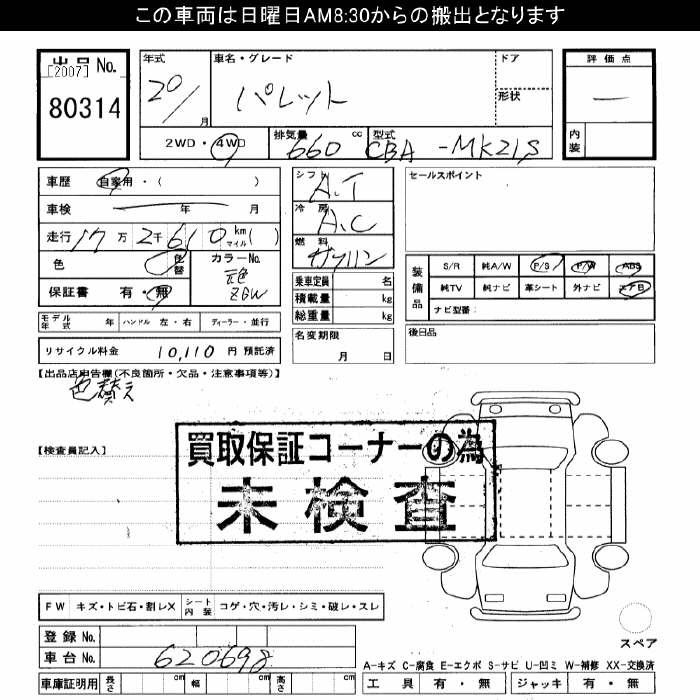 この車両は日曜日AM8:30からの搬出となります
出品 No.
[2007]
80314
年式 車名・グレード ドア 評価点
20/ 月 パレット 形状 —
2WD・4WD 排気量 660 cc 型式 CBA-MK21S 内装
車歴 自家用・( )
車検 年 月
走行 17万 2千 610 km マイル ( )
色 色替 カラーNo. ZGW
保証書 有・無
シフト A.T
冷房 A.C
燃料 ガソリン
乗車定員 名
積載量 kg
総重量 kg
セールスポイント
装備品 S/R 純A/W P/S P/W ABS
純TV 純ナビ 革シート 外ナビ エアB
ナビ型番:
モデル年式 年 ハンドル 左・右 ディーラー・並行
名変期限 月 日
後日品
リサイクル料金 10,110 円 預託済
【出品店申告欄(不良箇所・欠品・注意事項等)】
色替え
買取保証コーナーの為
未検査
【検査員記入】
FW キズ・トビ石・割レX シート内装 コゲ・穴・汚レ・シミ・破レ・スレ
登録 No.
車台 No. 620698
スペア
A-キズ C-腐食 E-エクボ S-サビ U-凹ミ W-補修 XX-交換済
車庫証明用 長さ cm 幅 cm 高さ cm
工具 有・無 ジャッキ 有・無